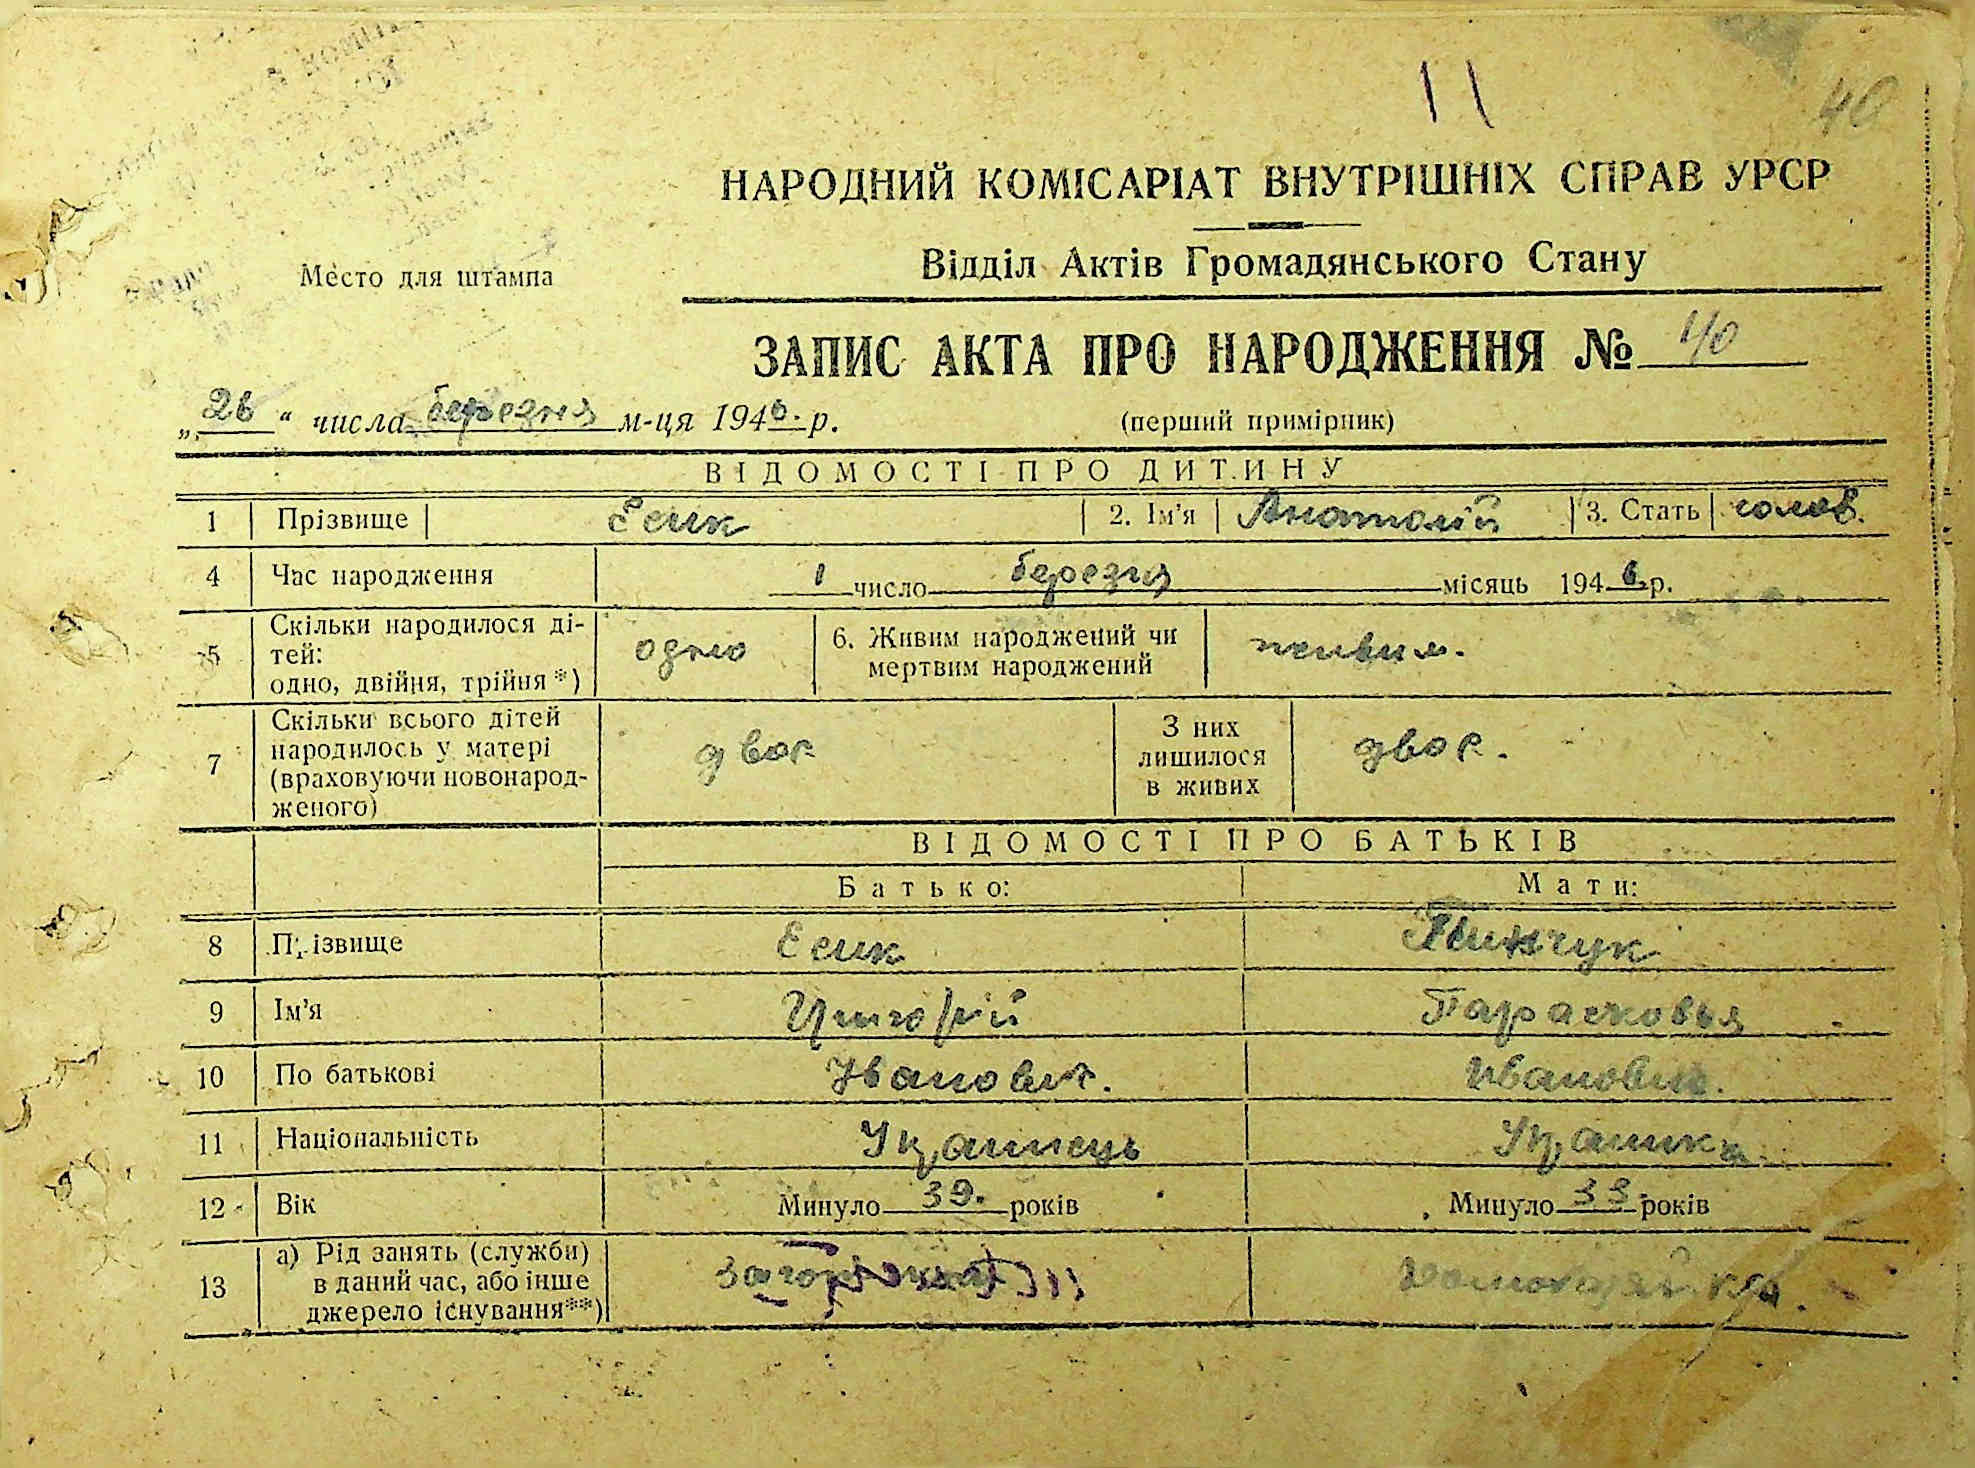 40
НАРОДНИЙ КОМІСАРІАТ ВНУТРІШНІХ СПРАВ УРСР
Відділ Актів Громадянського Стану
Место для штампа
ЗАПИС АКТА ПРО НАРОДЖЕННЯ № 40
„ 26 “ числа березня м-ця 1946. р. (перший примірник)
ВІДОМОСТІ ПРО ДИТИНУ
1 Прізвище Єсик 2. Ім'я Анатолій 3. Стать чолов.
4 Час народження 1 число березня місяць 1946 р.
5 Скільки народилося ді-
тей:
одно, двійня, трійня*) одно 6. Живим народжений чи
мертвим народжений живим.
7 Скільки всього дітей
народилось у матері
(враховуючи новонарод-
женого) двоє З них
лишилося
в живих двоє.
ВІДОМОСТІ ПРО БАТЬКІВ
Батько: Мати:
8 Прізвище Єсик Пинчук
9 Ім'я Григорій Парасковья
10 По батькові Іванович. Ивановна.
11 Національність Українець Українка
12 Вік Минуло 39. років Минуло 33 років
13 а) Рід занять (служби)
в даний час, або інше
джерело існування**)